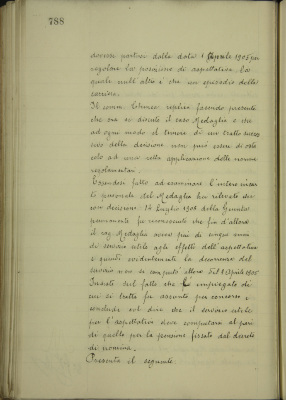 788
doversi partire dalla data 1 Aprile 1905 per
regolare la posizione di aspettativa la
quale null'altro è che un episodio della
carriera.
Il comm. replica facendo presente
che ora si discute il caso Medaglia e che
ad ogni modo il tenore di un tratto succes
sivo della decisione non può essere di osta
colo ad una retta applicazione delle norme
regolamentari.
fattosi ad esaminare l'intero incar
to personale del Medaglia ha rilevato che
con decisione 14 Luglio 1904 della Giunta
fu riconosciuto che fin d'allora
il rag. Medaglia aveva più di cinque anni
di servizio utile agli effetti dell'aspettativa
e quindi evidentemente la decorrenza del
servizio non va computata allora dal 1 Aprile 1905
Insiste sul fatto che l'impiegato di
cui si tratta fu assunto per concorso e
conclude col dire che il servizio utile
per l'aspettativa deve computarsi al pari
di quello per la pensione fissato dal decreto
di nomina.
Presenta il seguente